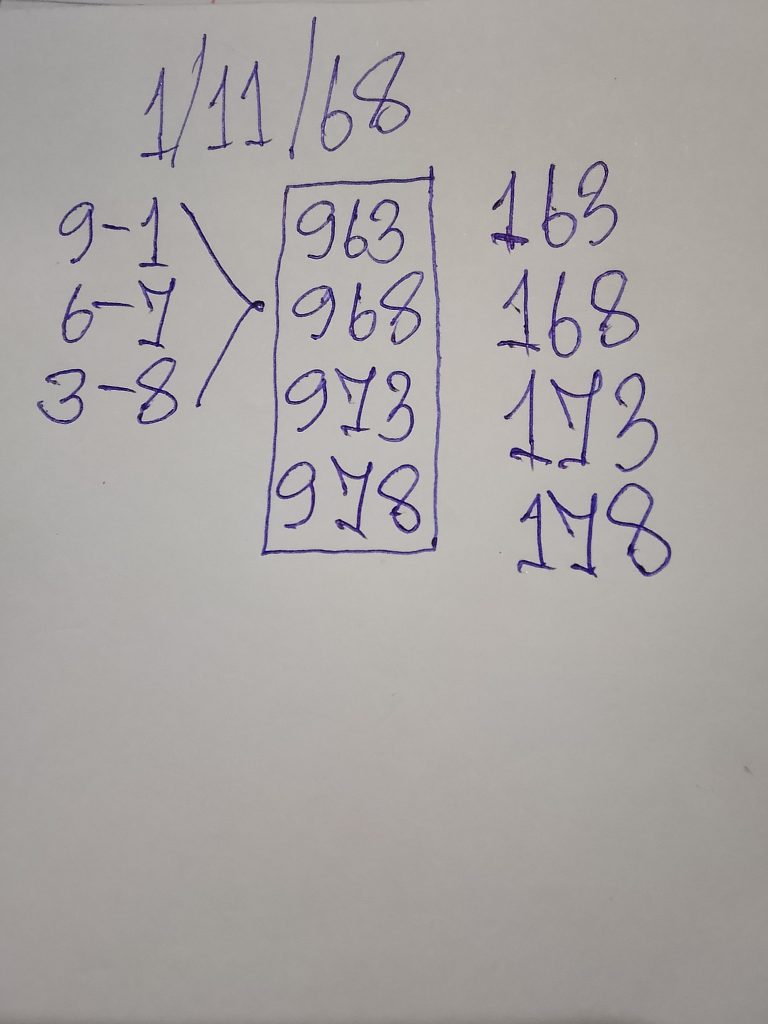 1/11/68
9-1
6-7
3-8
963
968
973
978
163
168
173
178